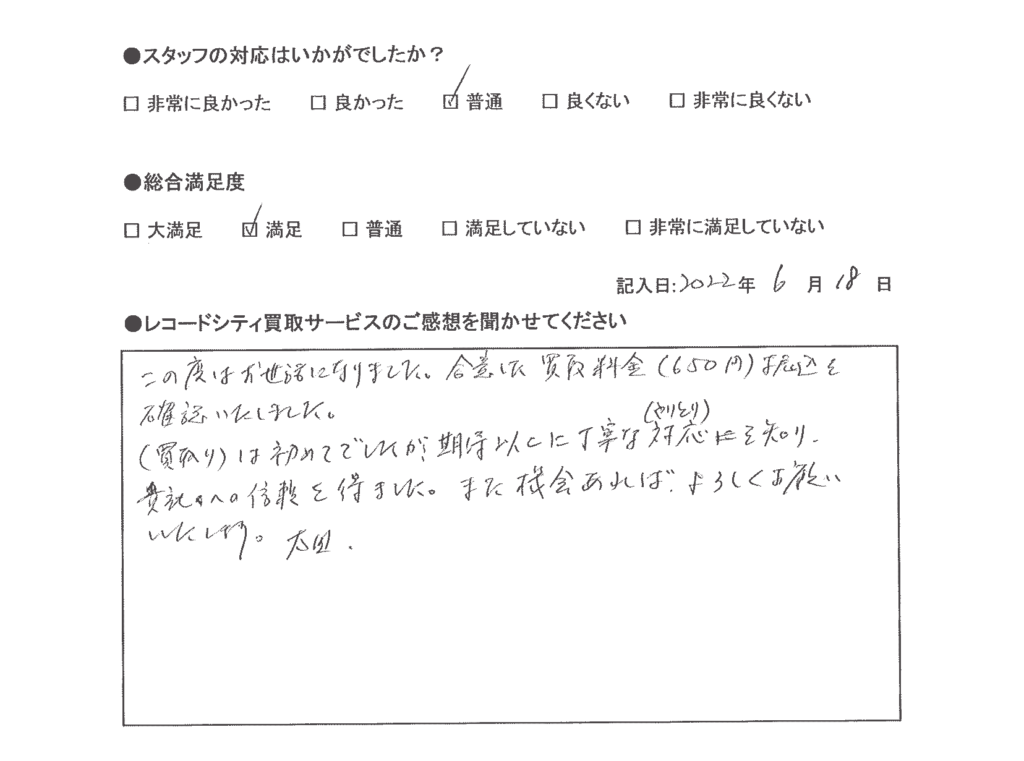 ●スタッフの対応はいかがでしたか？
□ 非常に良かった □ 良かった ☑ 普通 □ 良くない □ 非常に良くない
●総合満足度
□ 大満足 ☑ 満足 □ 普通 □ 満足していない □ 非常に満足していない
記入日:2022年 6 月 18 日
●レコードシティ買取サービスのご感想を聞かせてください
この度はお世話になりました。合意した買取料金(650円)お振込を
確認いたしました。
(やりとり)
(買取り)は初めてでしたが、期待以上に丁寧な対応に
への信頼を得ました。また機会あれば、よろしくお願い
いたします。太田.